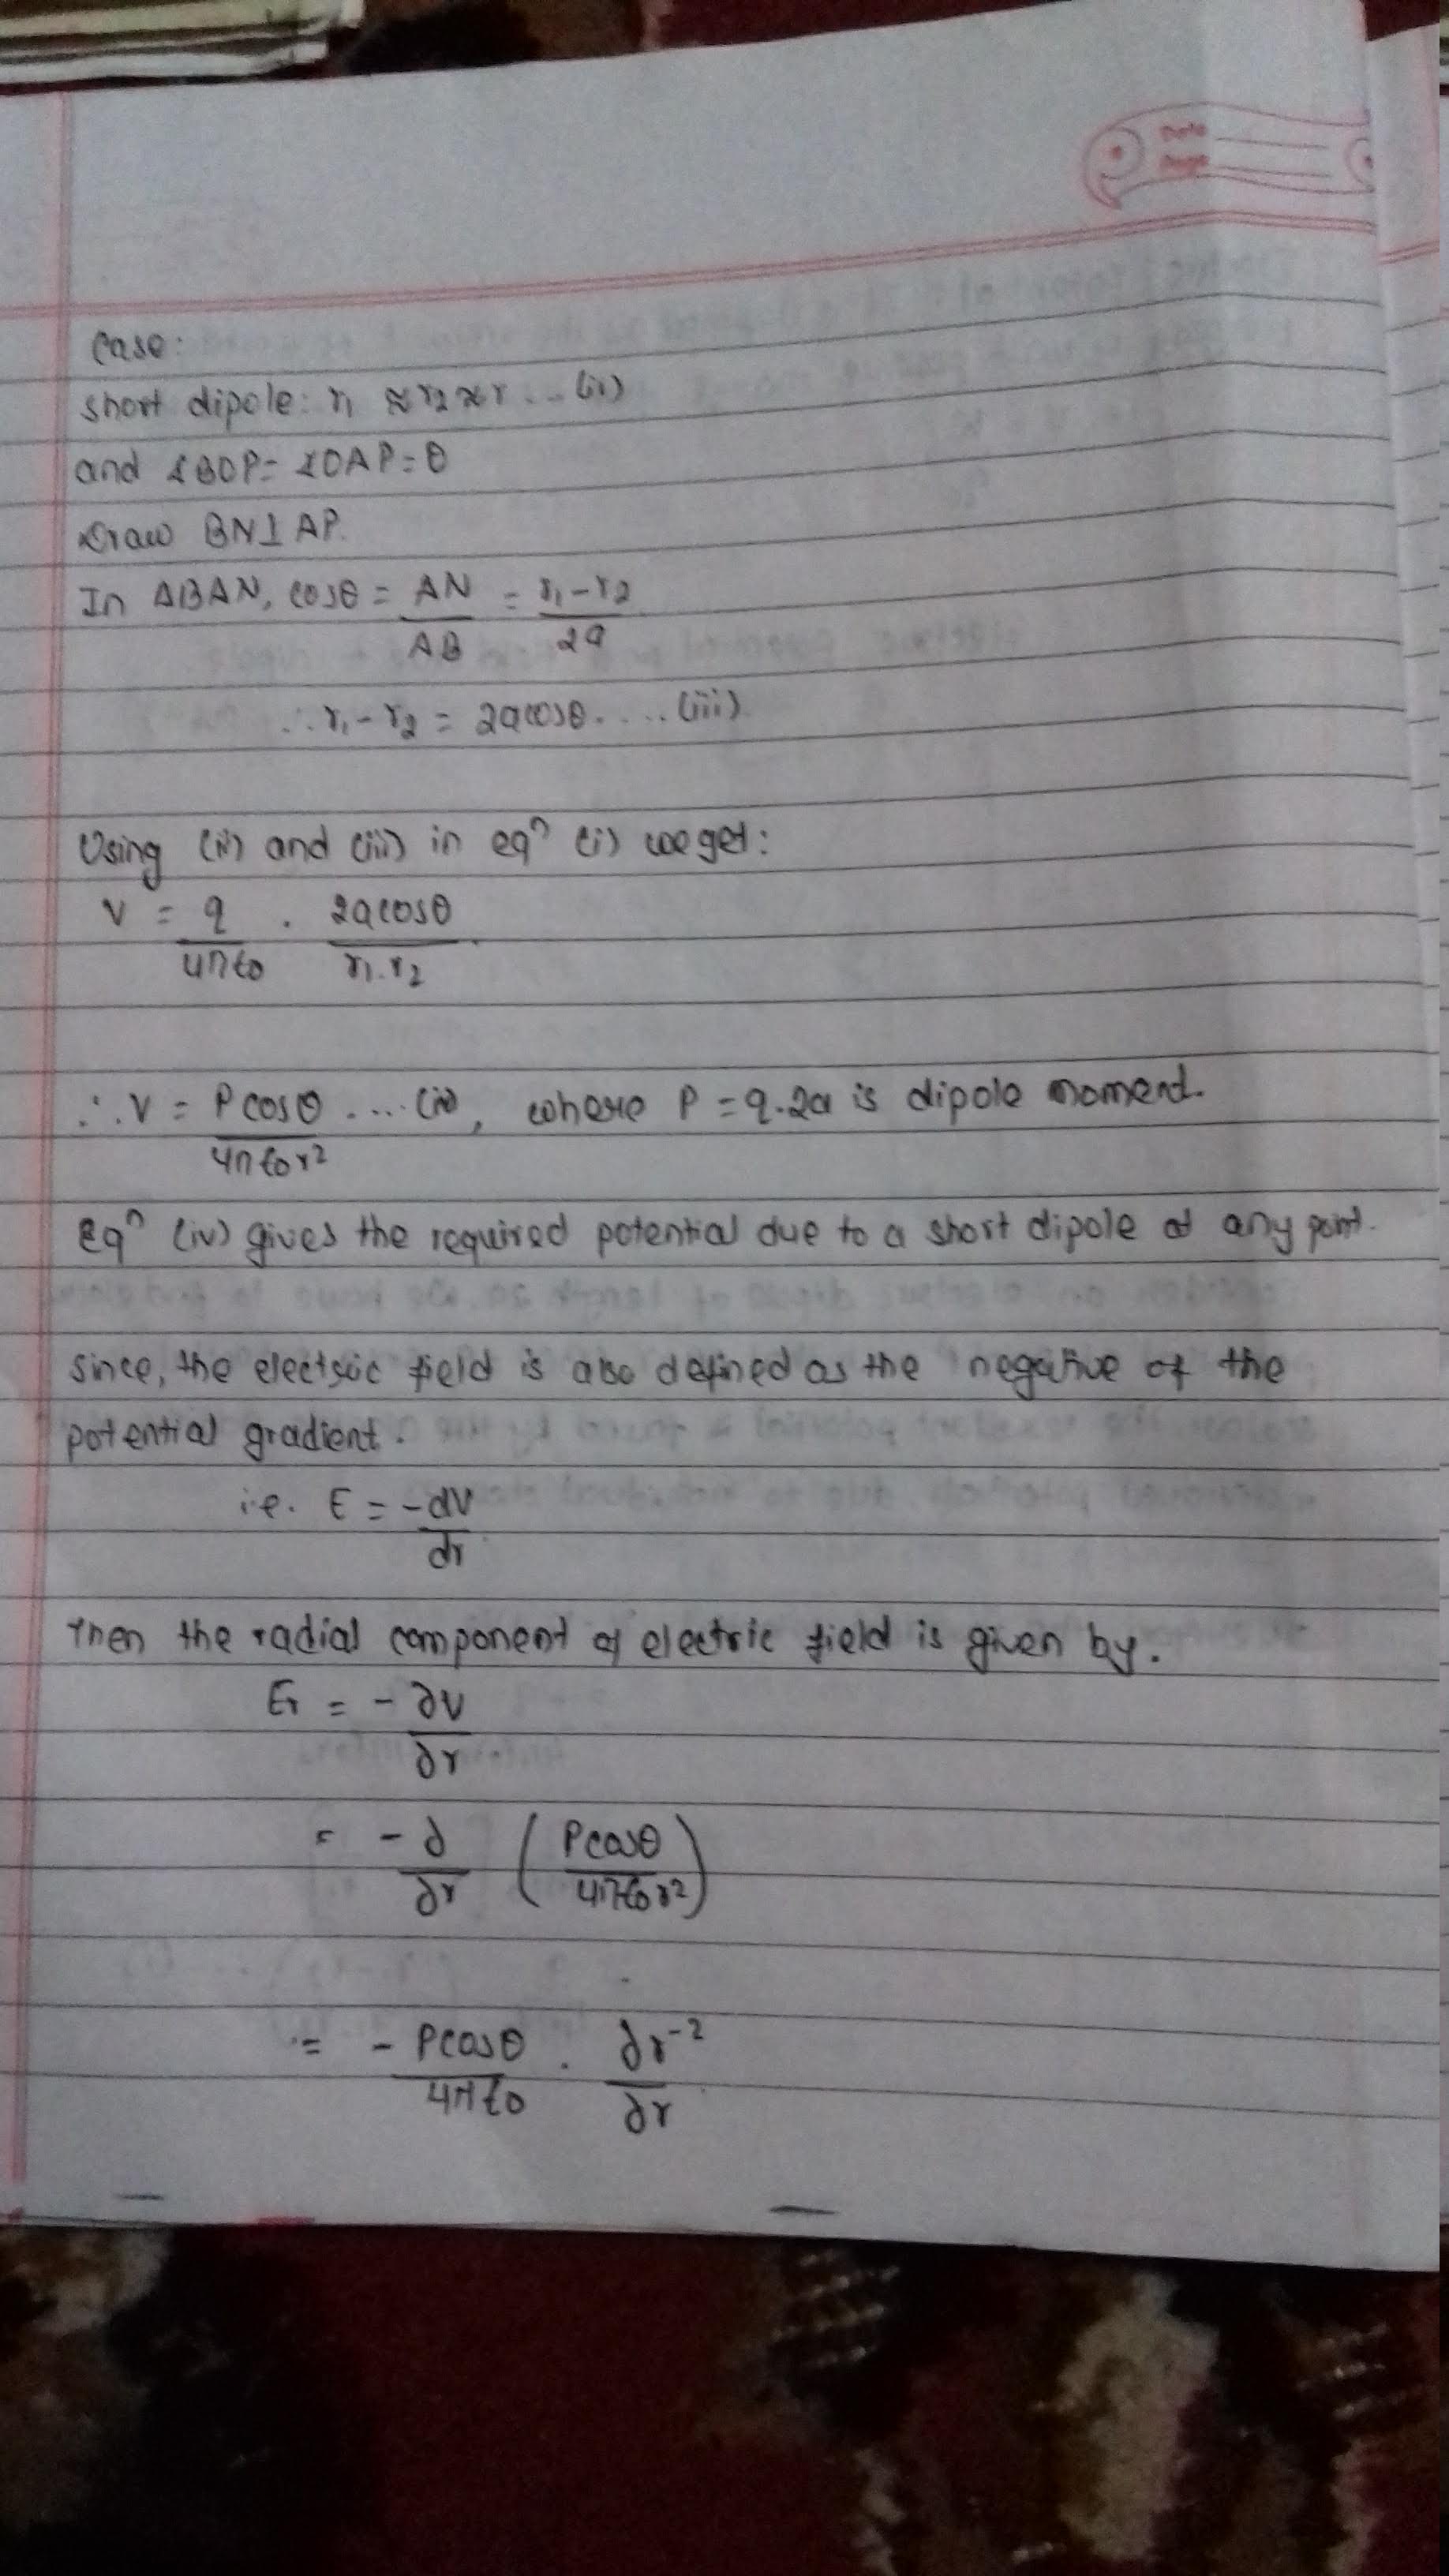 Date
Page
Case:
short dipole: r₁ ≈ r₂ ≈ r ... (ii)
and ∠BOP = ∠OAP = θ
Draw BN ⊥ AP.
In ΔBAN, cosθ = AN/AB = (r₁ - r₂)/2a
∴ r₁ - r₂ = 2a cosθ .... (iii)
Using (ii) and (iii) in eqⁿ (i) we get:
V = q/4πε₀ . 2a cosθ/r₁.r₂
∴ V = P cosθ/4πε₀r² .... (iv), where P = q.2a is dipole moment.
Eqⁿ (iv) gives the required potential due to a short dipole at any point.
since, the electric field is also defined as the negative of the
potential gradient.
i.e. E = -dV/dr
Then the radial component of electric field is given by.
Er = - ∂V/∂r
= - ∂/∂r (P cosθ/4πε₀r²)
= - P cosθ/4πε₀ . ∂r⁻²/∂r